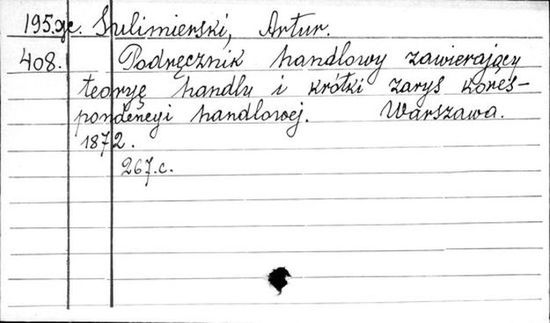 195.gc. Sulimierski, Artur.
408. Podręcznik handlowy zawierający
teoryę handlu i krótki zarys korés-
pondencyi handlowej. Warszawa.
1872.
267.c.